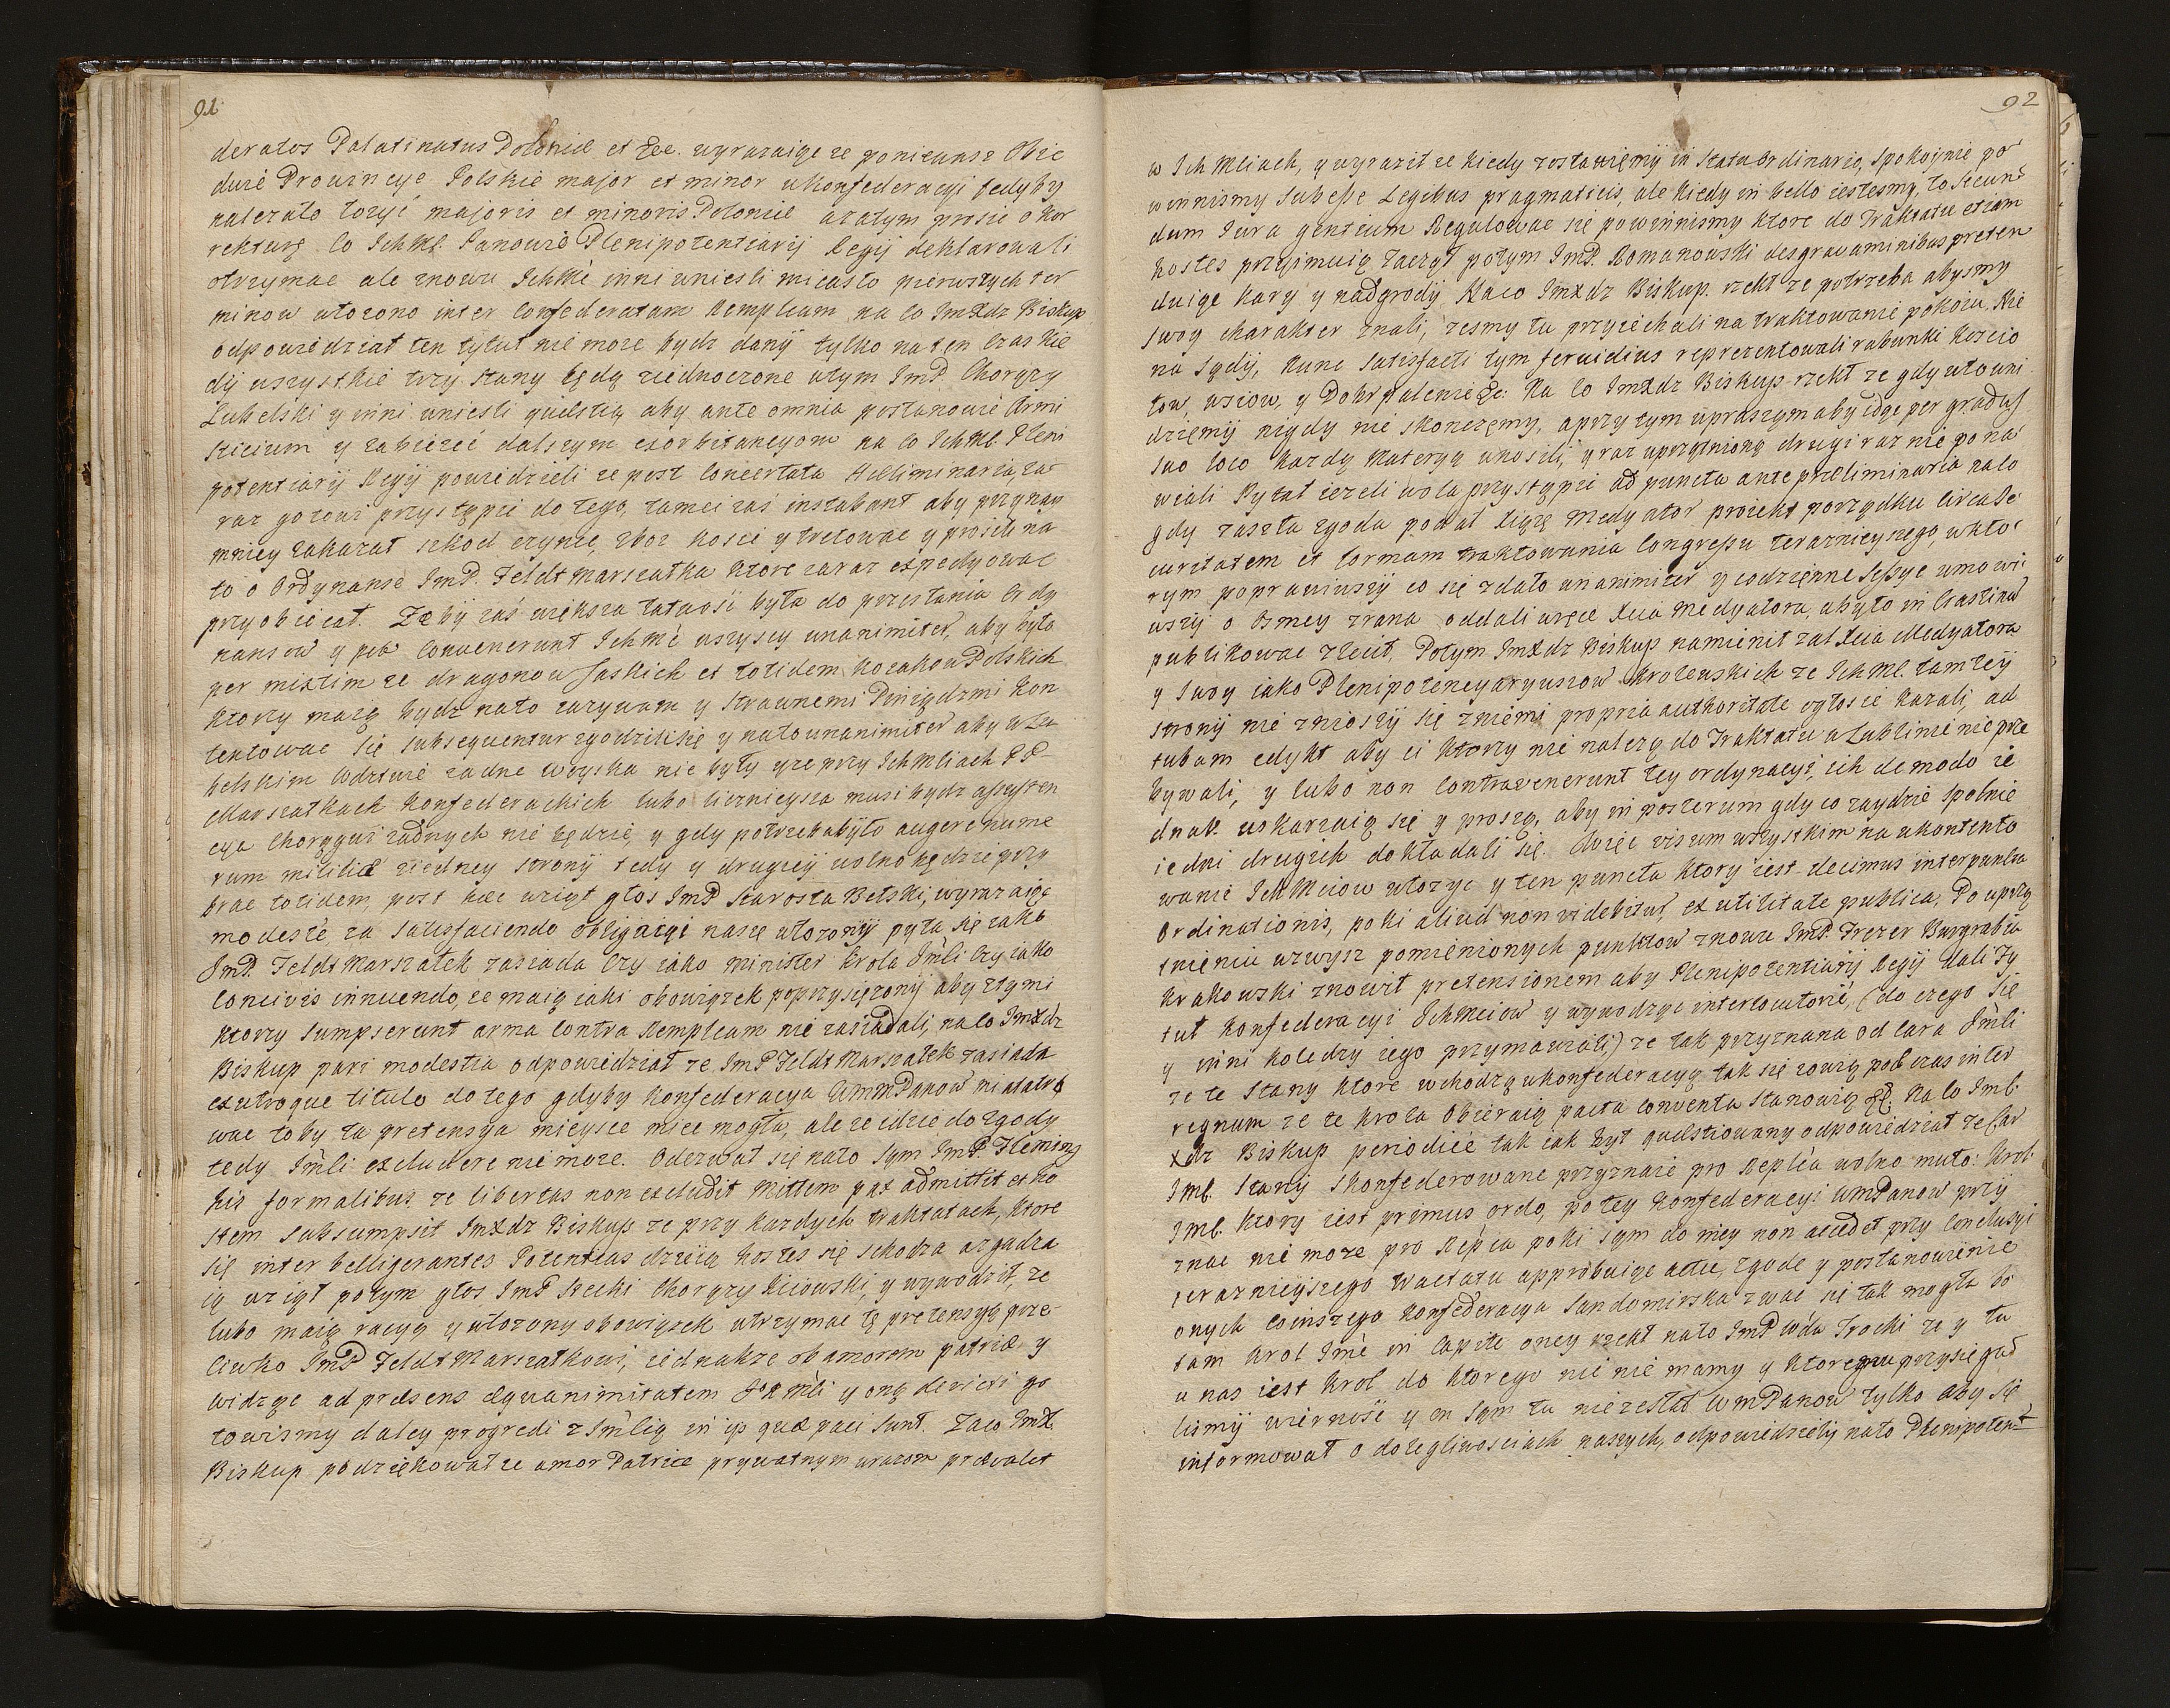 91
deratos Palatinatus Poloniæ et &c. wyrazaiąc ze poniewasz Obie
dwie Prowincye Polskie major et minor w konfederacyi fedyby
nalezało łozyć majoris et minoris Poloniæ azatym prosić o kor
rekturę co IchMć Panowie Plenipotentiarij Regij deklarowali
otrzymac ale znowu IchMć inni wniesli miasto pierwszych ter
minow utozono inter Confederatam Rempleam na co ImXdz Biskup
odpowiedział ten tytuł nie moze bydz dany tylko na ten czas kie
dy wszystkie trzy stany będą ziednoczone w tym ImP. Chorąży
Lubelski y inni wniesli quæstią aby ante omnia postanowić Armi
sticium y zabiezeć dalszym exorbitancyom na co IchMć Pleni
potentiarij Regij powiedzieli ze post concertata Præliminaria, za
raz gotowi przystąpić do tego, tamci zaś instabant aby przynay
mniey zakazał szkod czynic, zboz kosić y tretowac y prosili na
to o Ordynanse ImP. Feldt Marszałka ktore zaraz expedyowac
przyobiecał. Zeby zaś większa łatwość była do przesłania Ordy
nansow y ... convenerunt IchMć wszyscy unanimiter, aby była
per mixtim ze dragonow Saskich et totidem kozakow Polskich
ktorzy maią bydz nato zazywani y strawnemi Pieniądzmi kon
tentowac się subsequentur zgodzili się y nato unanimiter aby w Lu
belskim Wodztwie zadne woyska nie były y ze przy IchMciach PP
Marszałkach Konfederackich lubo licznieysza musi bydz assysten
cya Chorągwi zadnych nie będzie, y gdy potrzeba było augere nume
rum militiæ ziedney strony tedy y drugiey wolno będzie przy
brac totidem, post hæc wziął głos ImP Starosta Bełski, wyrazaiąc
modeste, za satisfaciendo obligacyi naszę utozony pyta się iako
ImP. Feldt Marszałek zasiada czy iako Minister Krola Jmci czy iako
Concivis innuendo, ze maią iaki obowiązek poprzysięzony aby z tymi
ktorzy sumpserunt arma contra Rempleam nie zasiadali, na co ImXdz
Biskup pari modestia odpowiedział ze ImP Feldt Marszałek zasiada
ex utroque titulo do tego gdyby Konfederacya WmmPanow niatatro
wac toby ta pretensya mieysce miec mogła, ale ze idzie do zgody
tedy Jmci excludere nie moze. Odezwał się nato sam ImP. Fleming
his formalibus, ze libertas non excludit Mittem pax admittit et ho
stem subsumpsit ImXdz Biskup ze przy kazdych traktatach, ktore
się inter belligerantes Potentias dzieią hostes się schodza azgadza
ią wziął potym głos, ImP Stecki Chorąży Kiiowski, y wywodził, ze
lubo maią racyę y utozony obowiązek utrzymac tę pretensyę prze
ciwko ImP Feldt Marszałkowi, iednakze ob amorem patriæ y
widząc ad præsens æquanimitatem ... y oną devicti go
towismy daley progredi z Jmcią in iis quæ paci sunt. Zaco ImX.
Biskup podziękował ze amor Patriæ prywatnym urazom prævalet
92
w IchMciach, y wyraził ze kiedy zostawięmy in statu ordinario, spokoynie po
winnismy subesse Legibus pragmaticis, ale kiedy in bello iestesmy, to secun
dum Jura gentium Regulowac się powinnismy ktore do Traktatu etiam
hostes przyimuią zaczął potym ImP. Romanowski desgravaminibus preten
duiąc kary y nadgrody Naco ImXdz Biskup. rzekł ze potrzeba abysmy
swoy charakter znali, zesmy tu przyiechali na traktowanie pokoiu, Nie
na sędy, hunc satisfacti tym fervidius reprezentowali rabunki koscio
łow, wsiow, y Dobr palenie &c. Na co ImXdz Biskup rzekł ze gdy utowni
dzięmy nigdy nie skonczęmy, a przy tym upraszym aby idąc per gradus
suo loco kazdy Materyą wnosili, y raz uprzątnioną drugi raz nie pona
wiali Pytał iezeli wola przystąpić ad puncta ante præliminaria na co
gdy zaszła zgoda podał Xiąze Medyator proiekt porządku circa Se
curitatem et formam traktowania Congressu terazniejszego, w kto
rym poprawiwszy co się zdało unanimiter y codzienne Sessye umowi
wszy o Osmey zrana oddali w ręce Xcia Medyatora, aby to in Castino
publikowac zlecił, Potym ImXdz Biskup namienił zal Xcia Medyatora
y swoy iako Plenipotencyaryuszow Krolewskich ze IchMć. tamtey
strony nie zniozszy się zniemi propria authoritate ogłosić kazali, ad
tubam edykt aby ci ktorzy nie nalezą do Traktatu w Lublinie nie prze
bywali, y lubo non contravenerunt tey ordynacyi, eih de modo ie
dnak uskarzaią się y proszą, aby in posterum gdy co zaydzie spolnie
iedni drugich dokładali się. Więc visum wszystkim na ukontento
wanie IchMciow utozyc y ten puncta ktory iest decimus inter puncta
Ordinationis, poki aliud non videbitur, ex utilitate publica, Po uprzą
tnieniu wzwysz pomienionych punktow znowu ImP. Trezer Burgrabia
Krakowski znowit pretensionem aby Plenipotentiarij Regij dali Ty
tuł Konfederacyi IchMciow y wywodząc interlocutorie, (do czego się
y inni koledzy iego przymawiali) ze tak przyznana od cara Jmci
ze te Stany ktore wchodzą w konfederacyę tak się zowią podczas inter
regnum ze te krola obieraią pacta conventa stanowią &c. Na co Imć.
Xdz Biskup periodice tak iak był quæstiowany odpowiedział ze Car
Imć. Stany skonfederowane przyznaie pro Repl'ca wolno muto: Krol
Imć. ktory iest primus ordo, po tey konfederacyi WmPanow przy
znac nie moze pro Rep'ca poki sam do niey non accedet przy Conclusyi
terazniejszego tractatu approbuiąc actu, zgode y postanowienie
onych co inszego Konfederacya Sandomirska zwac się tak mogła bo
tam Krol Jmć in capite oney rzekł nato ImP Wda Trocki ze y tu
u nas iest Krol do ktorego nic nie mamy y ktoremu przysięgal
lismy wiernosć y on sam tu nie zesłał WmPanow tylko aby się
informował o dolegliwosciach naszych, odpowiedzieli nato Plenipotent